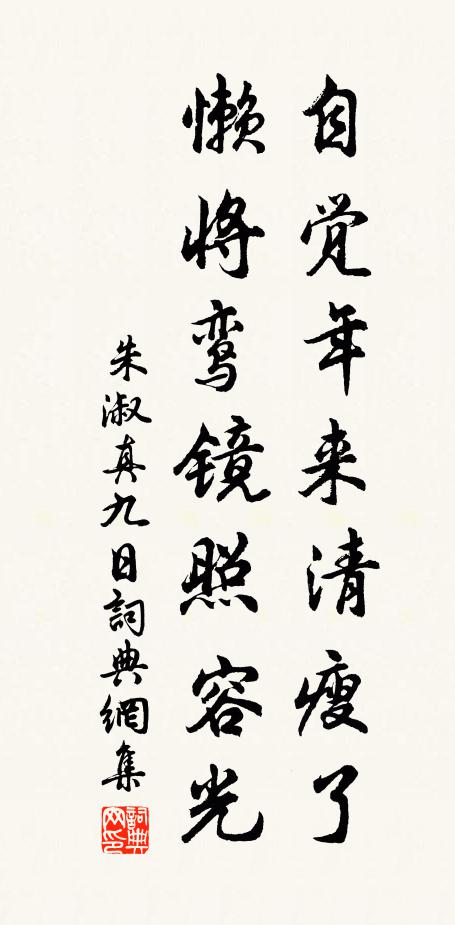 自觉年来清瘦了
懒将鸾镜照容光
朱淑真九日詞典網集
詞典网印